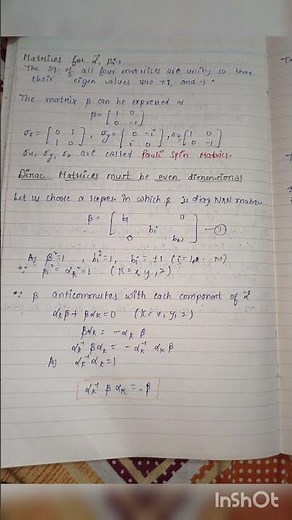 Matrices for α, β :-
The sq. of all four matrices are unity, so that
their eigen values are +1, and -1.
The matrix β can be expressed as
β = [1 0
0 -1]
σx = [0 1
1 0], σy = [0 -i
i 0], σz = [1 0
0 -1]
σx, σy, σz are called Pauli Spin Matrices.
Dirac Matrices must be even dimensional
Let us choose a repres. in which β is diag N×N matrix
β = [b1 0
bi
0 bN] — (1)
As β² = 1, bi² = 1, bi = ±1 (i = 1, 2 .. N)
∵ β² = αk² = 1 (k = x, y, z)
∵ β anticommutes with each component of α
αkβ + βαk = 0 (k = x, y, z)
βαk = -αk β
αk⁻¹ βαk = -αk⁻¹ αk β
As αk⁻¹ αk = 1
αk⁻¹ β αk = -β
InShOt